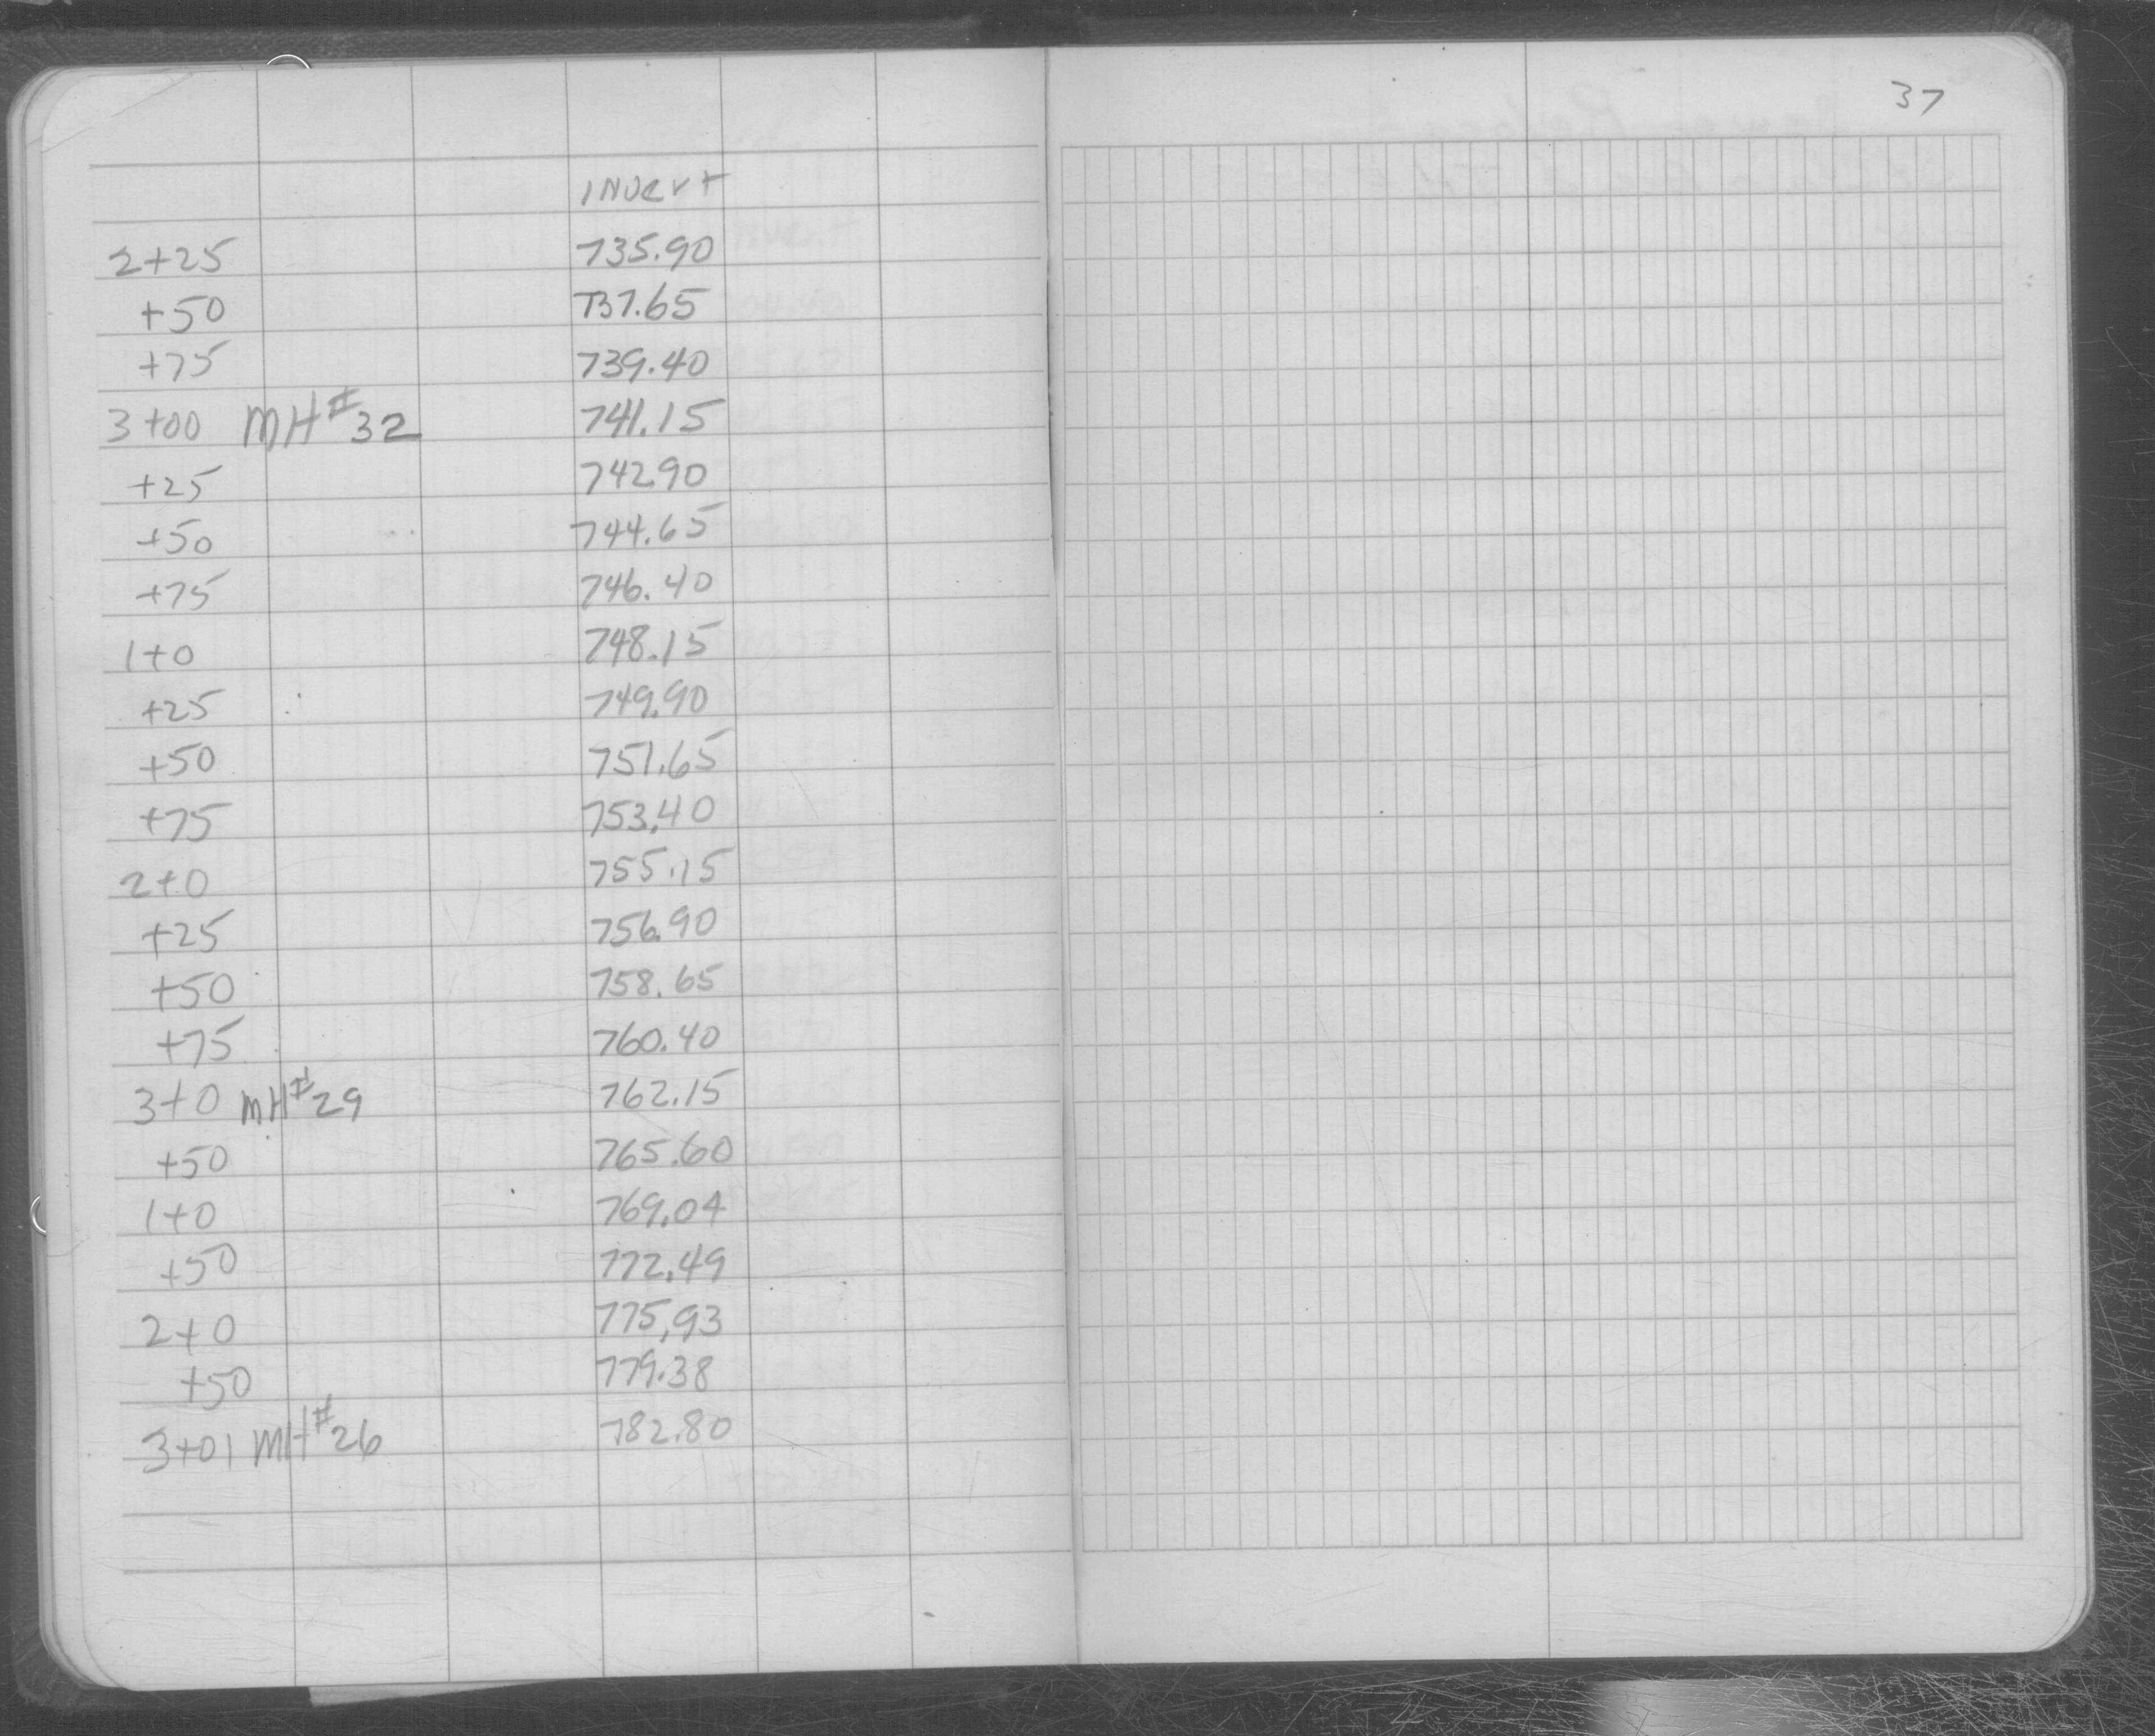 37
INVert
2+25 735.90
+50 737.65
+75 739.40
3+00 MH#32 741.15
+25 742.90
+50 744.65
+75 746.40
1+0 748.15
+25 749.90
+50 751.65
+75 753.40
2+0 755.15
+25 756.90
+50 758.65
+75 760.40
3+0 MH#29 762.15
+50 765.60
1+0 769.04
+50 772.49
2+0 775.93
+50 779.38
3+01 MH#26 782.80